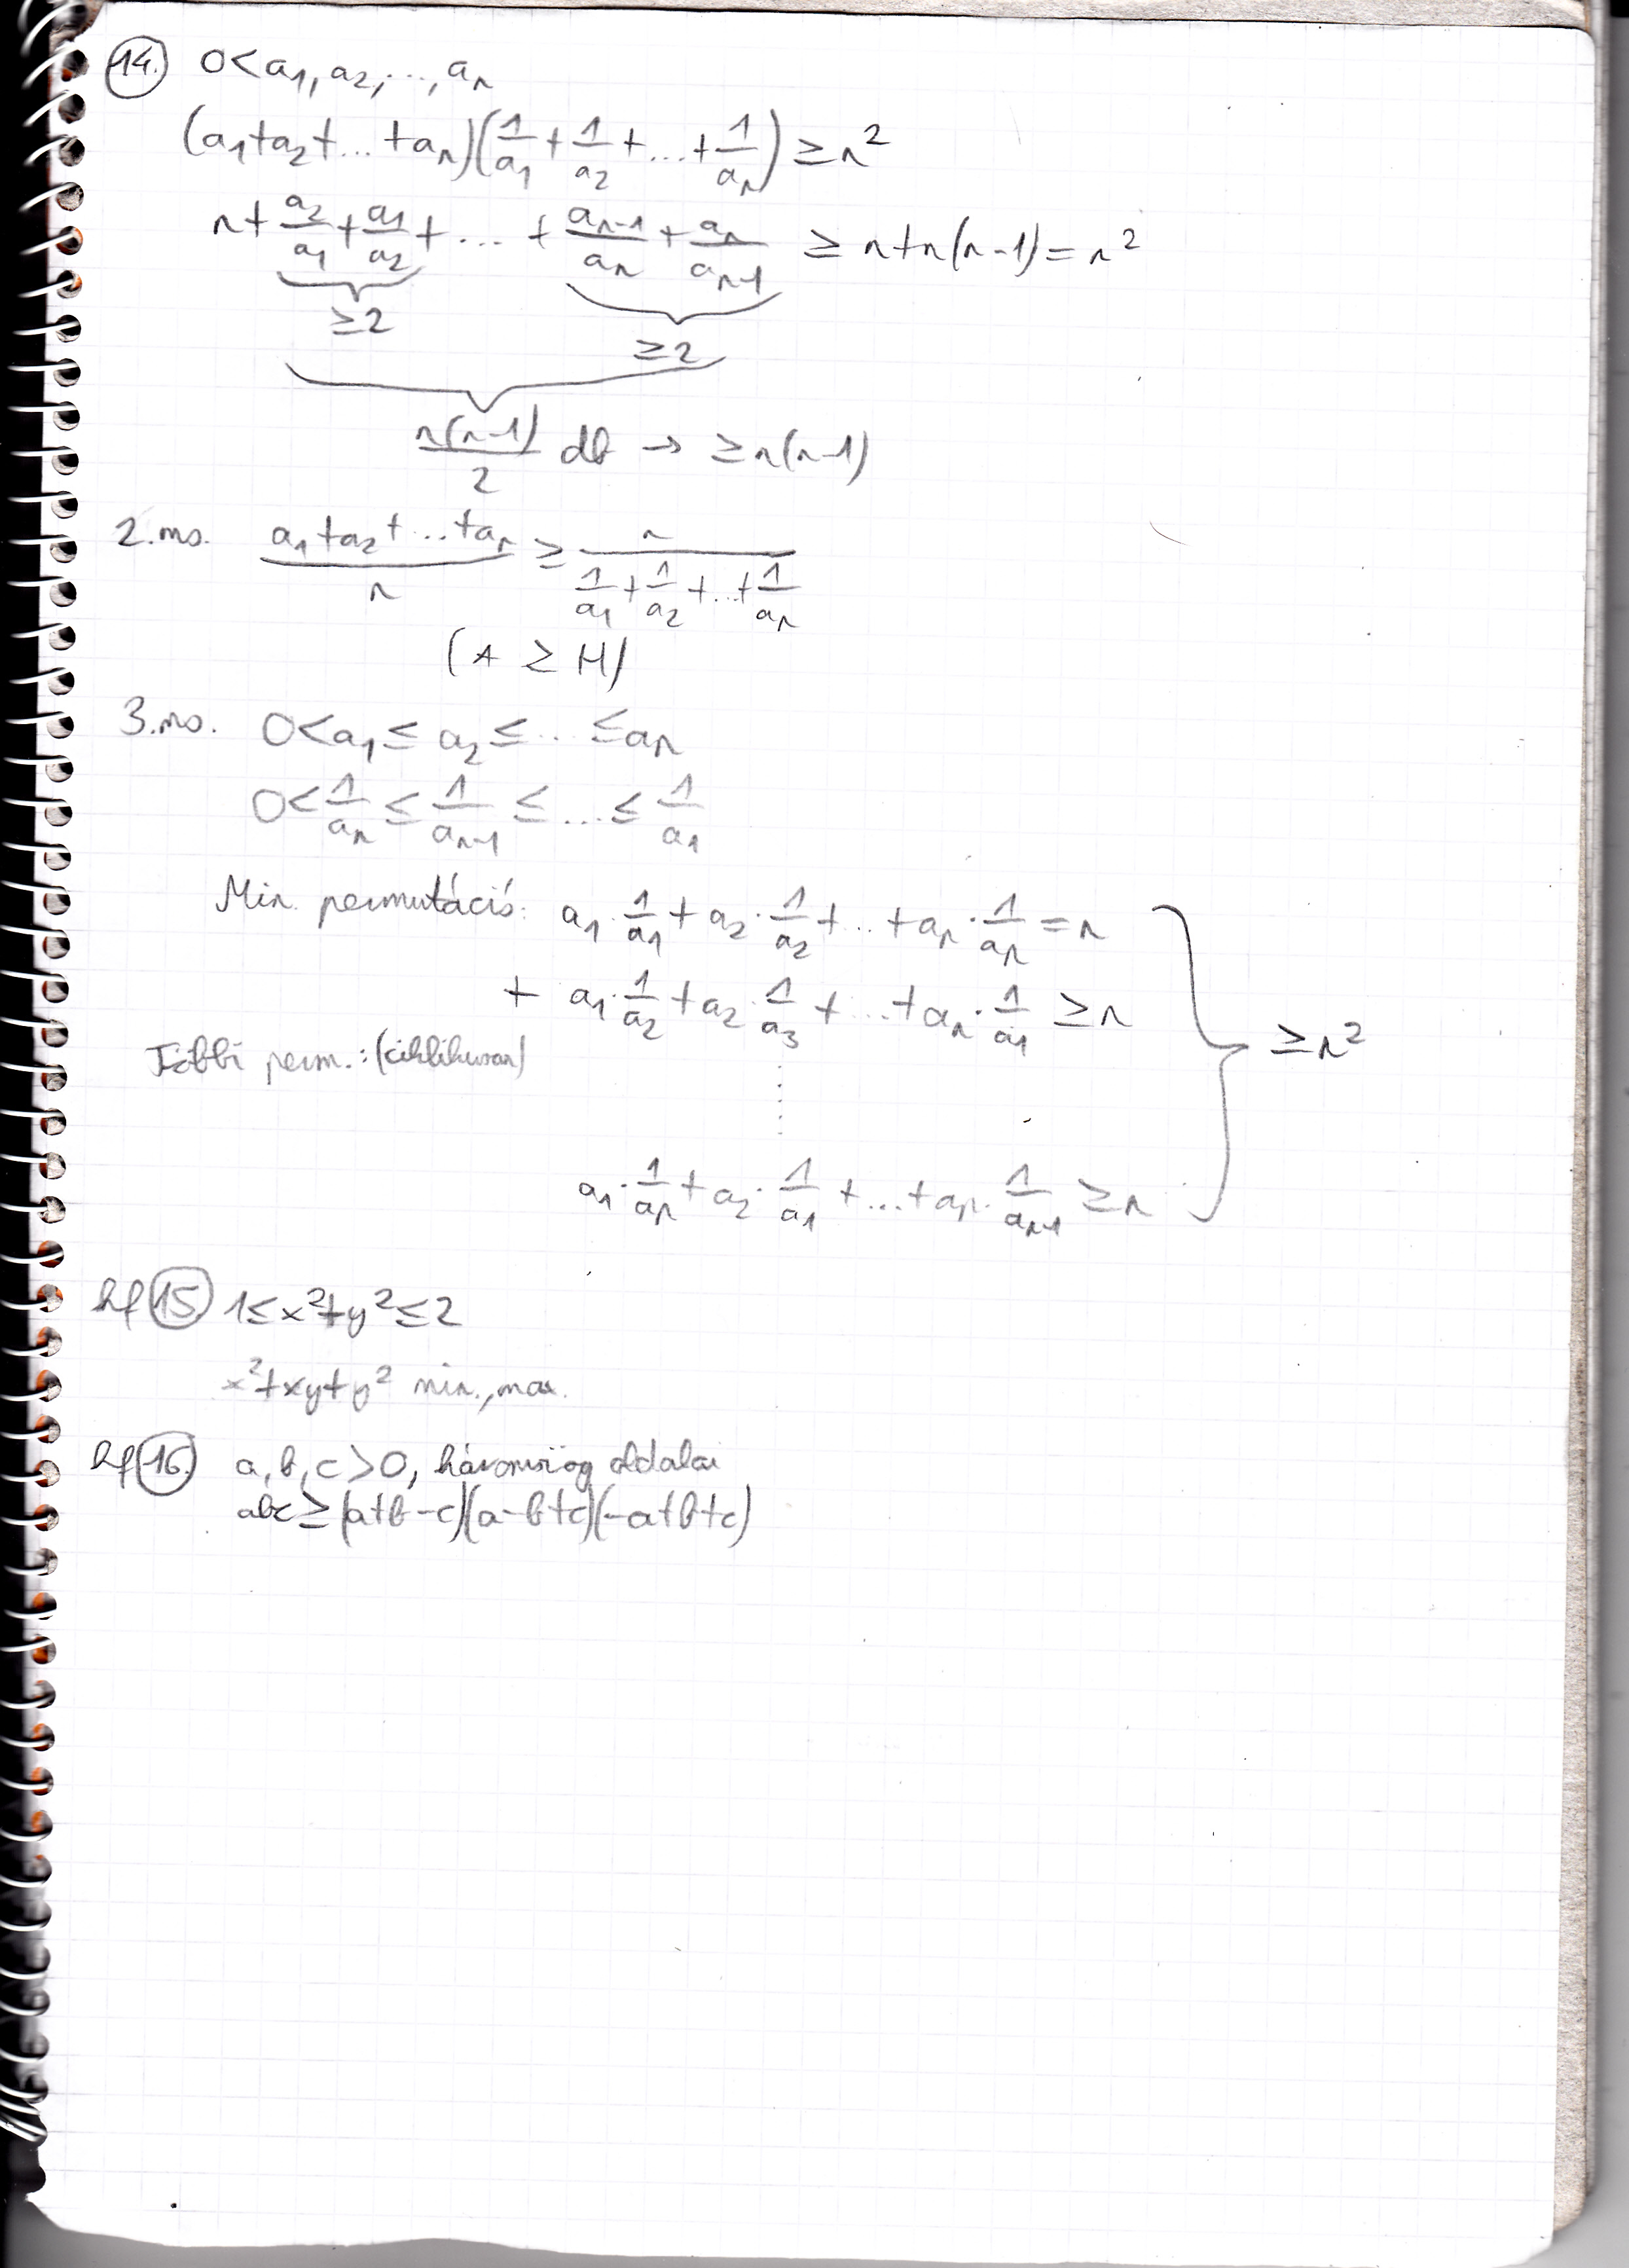 14. 0<a₁, a₂, ..., aₙ
(a₁+a₂+...+aₙ)(1/a₁ + 1/a₂ +...+ 1/aₙ) ≥ n²
n + a₂/a₁ + a₁/a₂ + ... + aₙ₋₁/aₙ + aₙ/aₙ₋₁ ≥ n+n(n-1) = n²
≥2
≥2
n(n-1)/2 db → ≥ n(n-1)
2.mo. (a₁+a₂+...+aₙ)/n ≥ n/(1/a₁ + 1/a₂ +...+ 1/aₙ)
(A ≥ H)
3.mo. 0<a₁ ≤ a₂ ≤ ... ≤ aₙ
0< 1/aₙ ≤ 1/aₙ₋₁ ≤ ... ≤ 1/a₁
Min. permutáció: a₁·1/a₁ + a₂·1/a₂ +...+ aₙ·1/aₙ = n
+ a₁·1/a₂ + a₂·1/a₃ + ... + aₙ·1/a₁ ≥ n
Többi perm.: (ciklikusan)
≥ n²
a₁·1/aₙ + a₂·1/a₁ + ... + aₙ·1/aₙ₋₁ ≥ n
hf 15. 1 ≤ x²+y² ≤ 2
x²+xy+y² min., max.
hf 16. a, b, c > 0, háromszög oldalai
abc ≥ (a+b-c)(a-b+c)(-a+b+c)